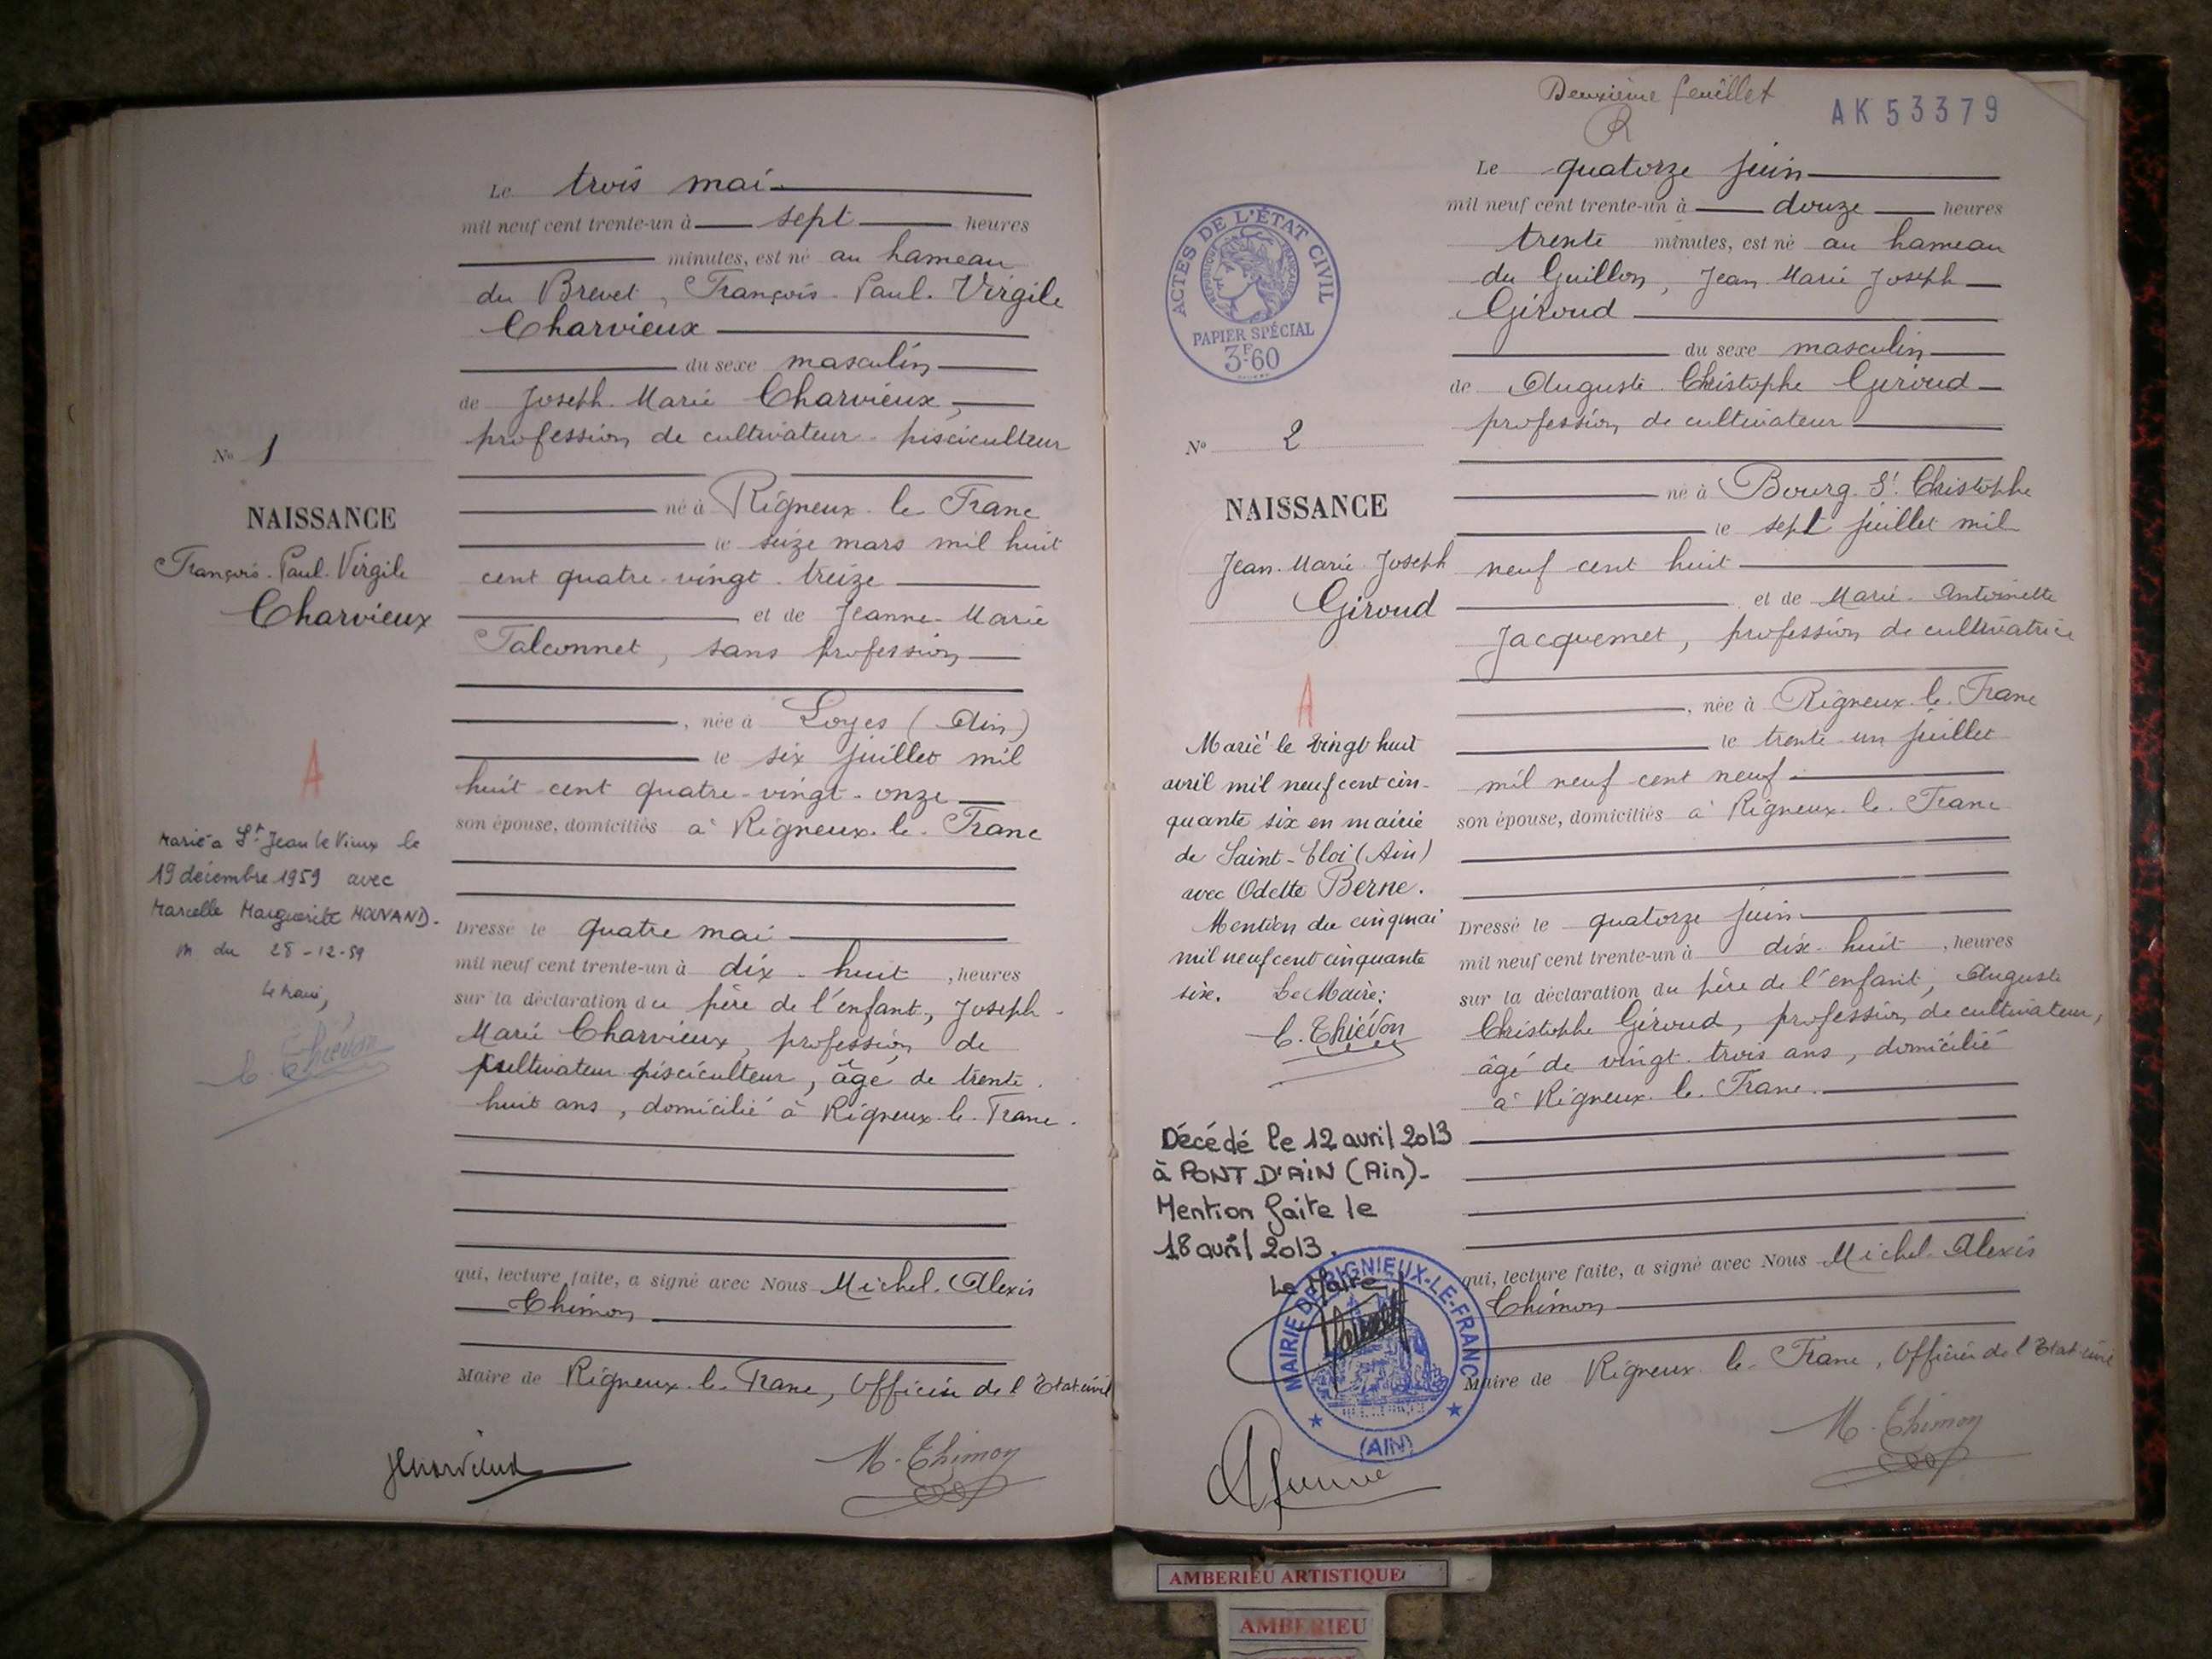 Le trois mai
mil neuf cent trente-un à sept heures
minutes, est né au hameau
du Brevet, François-Paul-Virgile
Charvieux
du sexe masculin
de Joseph-Marie Charvieux,
profession de cultivateur-pisciculteur
né à Rigneux-le-Franc
le seize mars mil huit
cent quatre-vingt-treize
et de Jeanne-Marie
Falconnet, sans profession
, née à Loyes (Ain)
le six juillet mil
huit cent quatre-vingt-onze
son épouse, domiciliés à Rigneux-le-Franc
Dressé le quatre mai
mil neuf cent trente-un à dix-huit, heures
sur la déclaration du père de l'enfant, Joseph-
Marie Charvieux, profession de
cultivateur pisciculteur, âgé de trente-
huit ans, domicilié à Rigneux-le-Franc.
qui, lecture faite, a signé avec Nous Michel-Alexis
Thimon
Maire de Rigneux-le-Franc, Officier de l'Etat-civil
M. Thimon
N° 1
NAISSANCE
François-Paul-Virgile
Charvieux
A
Marié à St Jean le Vieux le
19 décembre 1959 avec
Marcelle Marguerite MOUVAND-
M du 28-12-59
Le Maire,
C. Thiévon
Deuxième feuillet
AK53379
Le quatorze juin
mil neuf cent trente-un à douze heures
trente minutes, est né au hameau
du Guillon, Jean-Marie-Joseph
Giroud
du sexe masculin
de Auguste-Christophe Giroud
profession de cultivateur
né à Bourg-St-Christophe
le sept juillet mil
neuf cent huit
et de Marie-Antoinette
Jacquemet, profession de cultivatrice
, née à Rigneux-le-Franc
le trente-un juillet
mil neuf cent neuf
son épouse, domiciliés à Rigneux-le-Franc
Dressé le quatorze juin
mil neuf cent trente-un à dix-huit, heures
sur la déclaration du père de l'enfant, Auguste
Christophe Giroud, profession de cultivateur,
âgé de vingt-trois ans, domicilié
à Rigneux-le-Franc.
qui, lecture faite, a signé avec Nous Michel-Alexis
Thimon
Maire de Rigneux-le-Franc, Officier de l'Etat-civil
M. Thimon
ACTES DE L'ÉTAT CIVIL
RÉPUBLIQUE FRANÇAISE
PAPIER SPÉCIAL
3F60
N° 2
NAISSANCE
Jean-Marie-Joseph
Giroud
A
Marié le vingt huit
avril mil neuf cent cin-
quante six en mairie
de Saint-Eloi (Ain)
avec Odette Berne.
Mention du cinq mai
mil neuf cent cinquante
six. Le Maire;
C. Thiévon
Décédé le 12 avril 2013
à PONT D'AIN (Ain)-
Mention faite le
18 avril 2013.
Le Maire
MAIRIE DE RIGNIEUX-LE-FRANC
(AIN)
AMBERIEU ARTISTIQUE
AMBERIEU